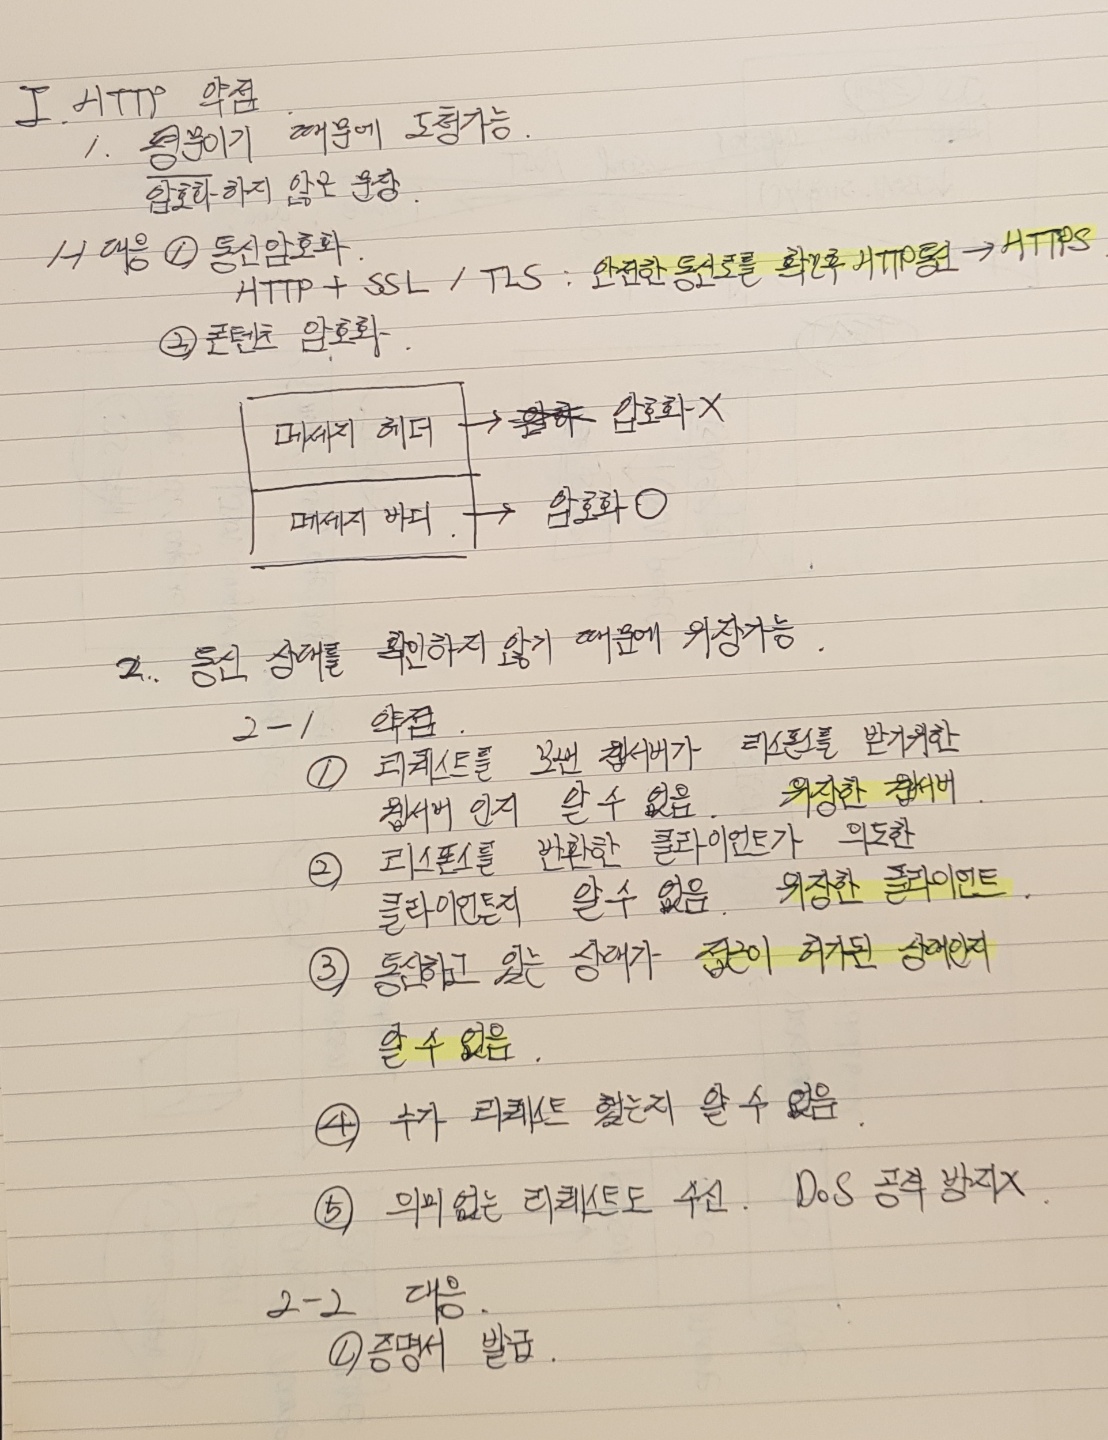 I. HTTP 약점.
1. 평문이기 때문에 도청가능.
암호화하지 않은 문장.
1-1 대응 ① 통신암호화.
HTTP + SSL / TLS : 안전한 통신로를 확립후 HTTP통신 → HTTPS
② 콘텐츠 암호화.
메세지 헤더 → 암호화 X
메세지 바디. → 암호화 ○
2. 통신 상대를 확인하지 않기 때문에 위장가능.
2-1 약점.
① 리퀘스트를 보낸 웹서버가 리스폰스를 받기위한
웹서버 인지 알 수 없음. 위장한 웹서버.
② 리스폰스를 반환한 클라이언트가 의도한
클라이언트지 알 수 없음. 위장한 클라이언트.
③ 통신하고 있는 상대가 접근이 허가된 상대인지
알 수 없음.
④ 누가 리퀘스트 했는지 알 수 없음.
⑤ 의미 없는 리퀘스트도 수신. DoS 공격 방지X.
2-2 대응.
① 증명서 발급.